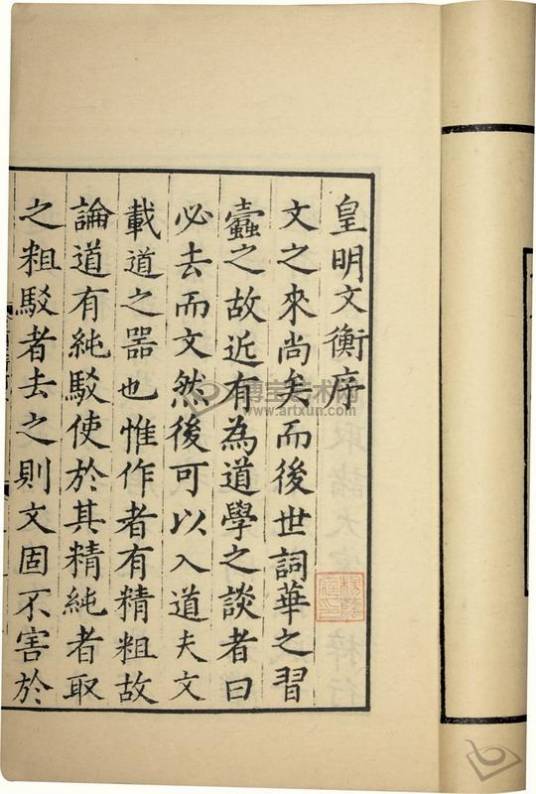 皇明文衡序
文之來尚矣而後世詞華之習
蠹之故近有為道學之談者曰
必去而文然後可以入道夫文
載道之器也惟作者有精粗故
論道有純駁使於其精純者取
之粗駁者去之則文固不害於
www.artxun.com